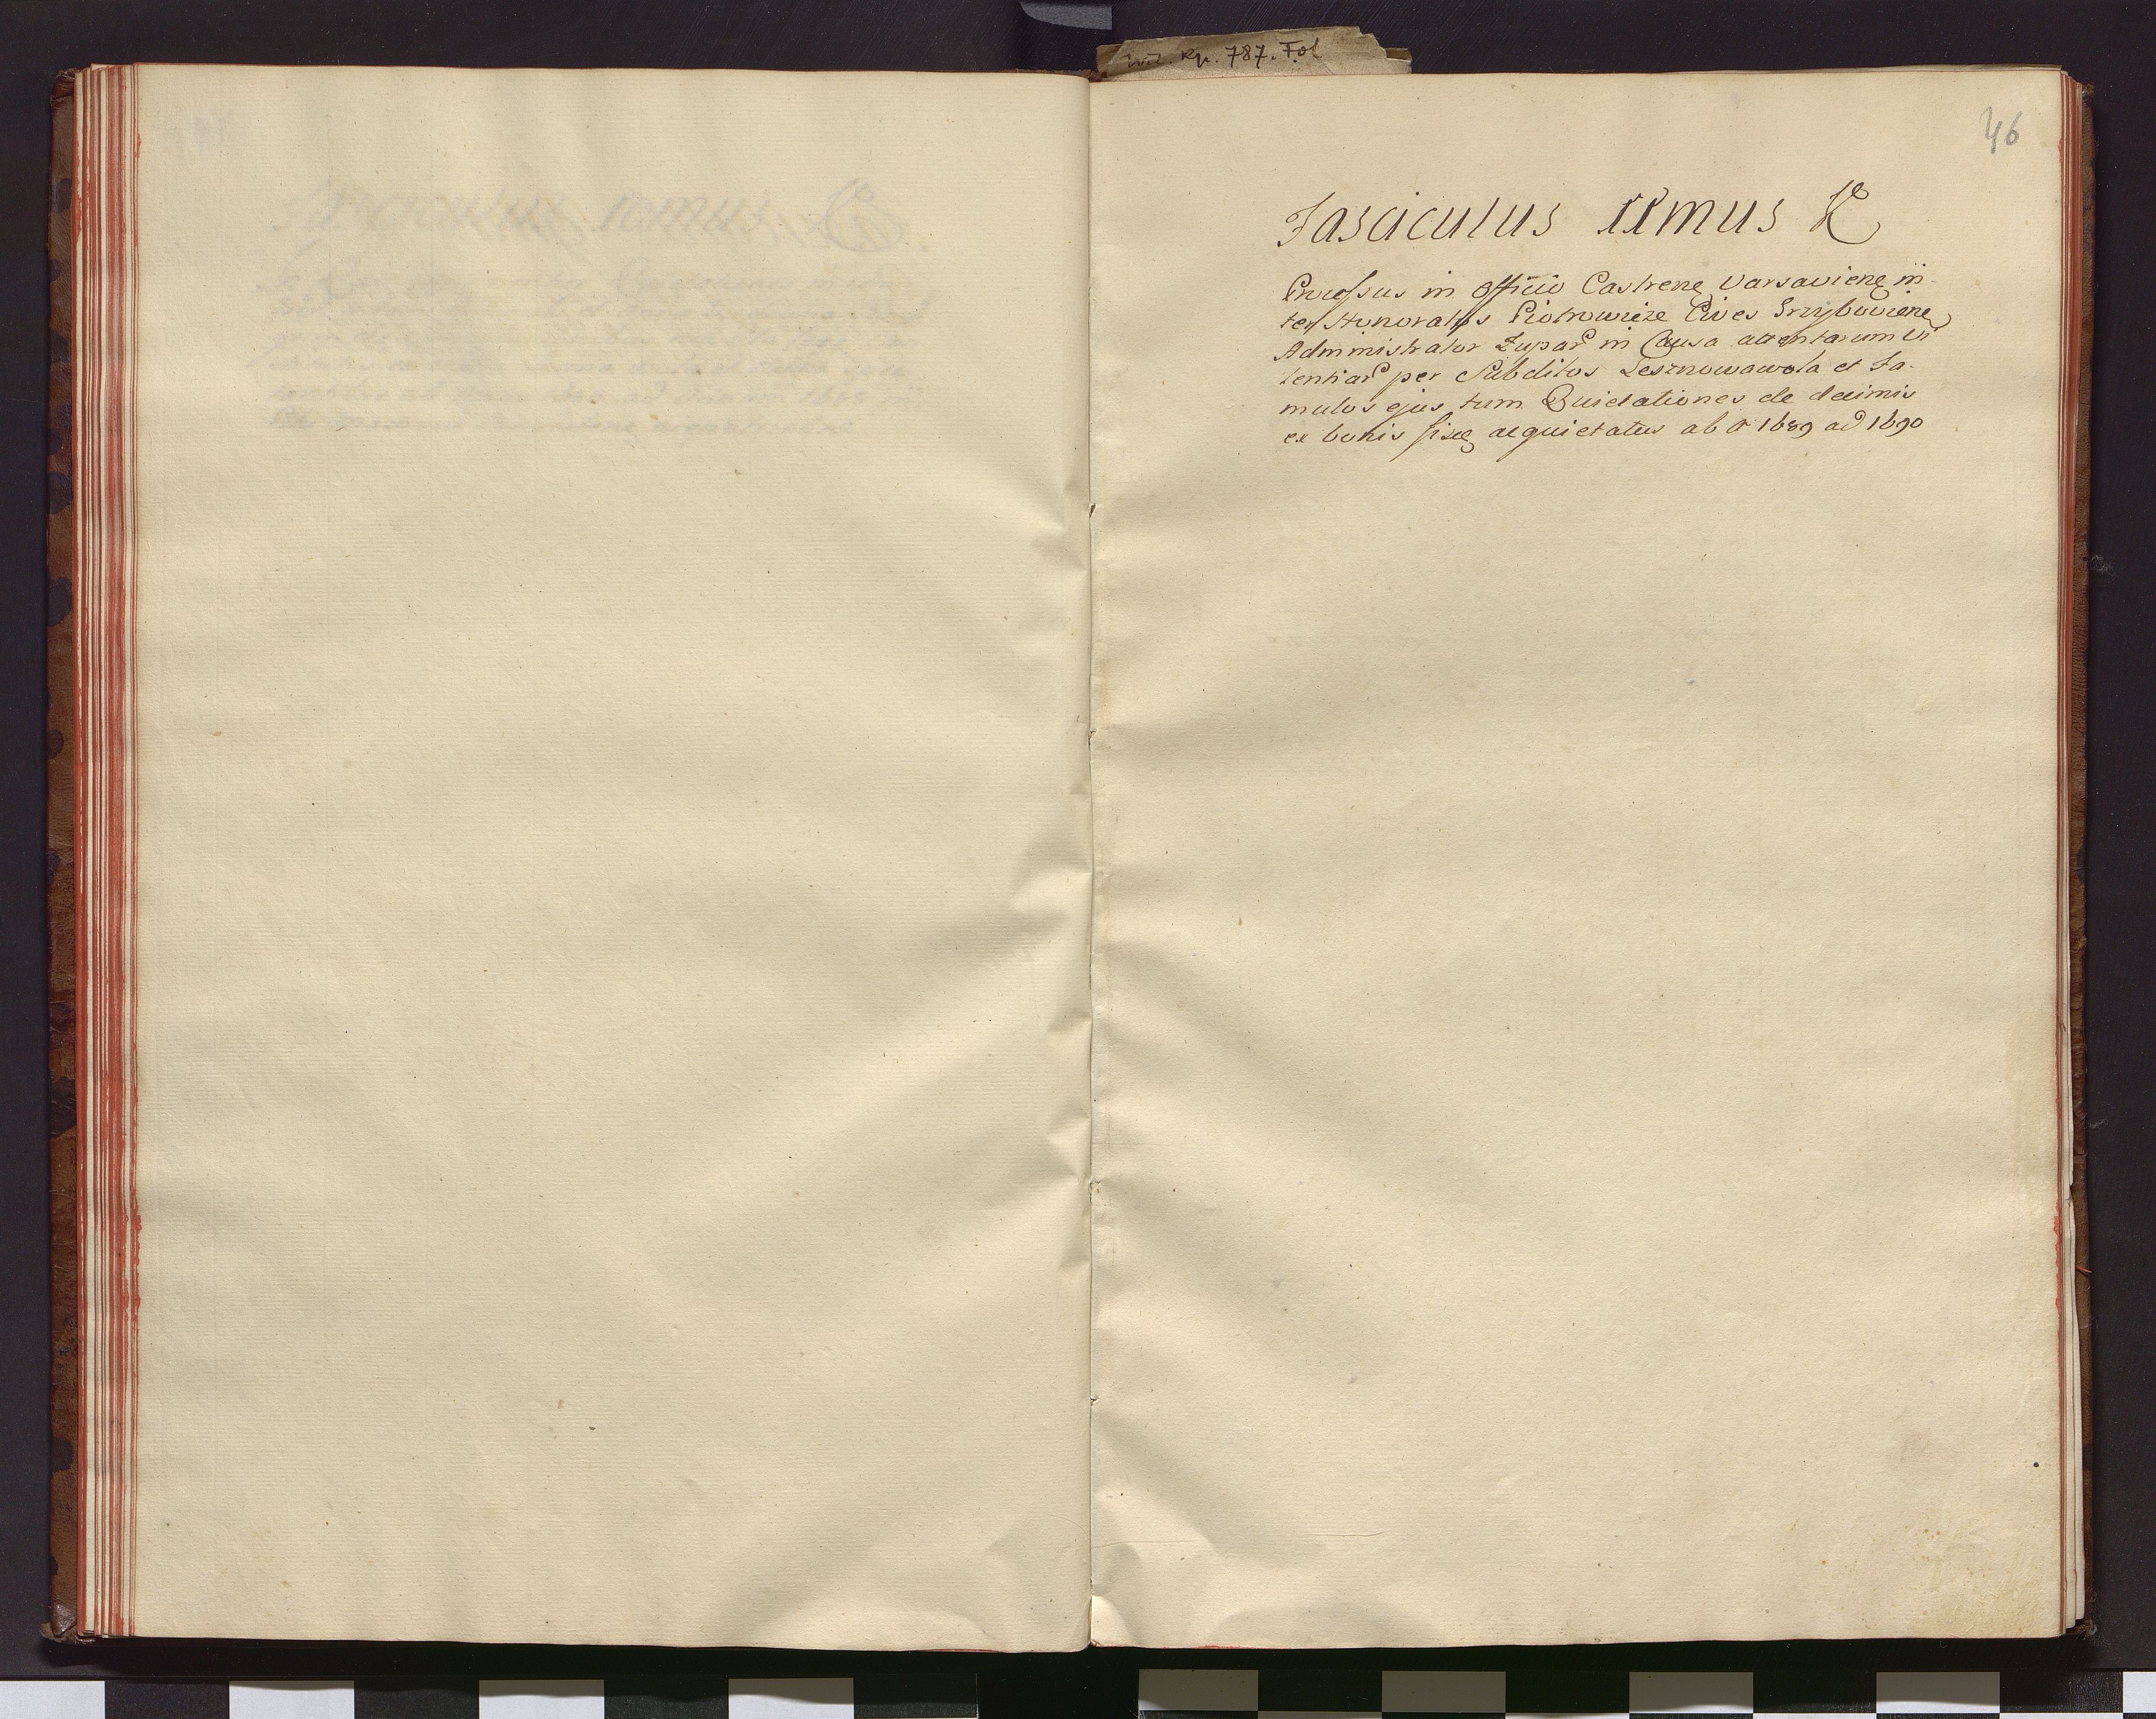 Wil. Rp. 787. Fol
46
Fasciculus 11mus K
Processus in Officio Castrene Varsaviene in-
ter Honoratos Piotrowicze Cives Grzybowiene
Administrator Zupar in Causa attentarum Vi
lentiar per Subditos Lesznowawola et Fa-
mulos ejus tum Quietationes de decimis
ex bonis acquietatus ab A 1689 ad 1690